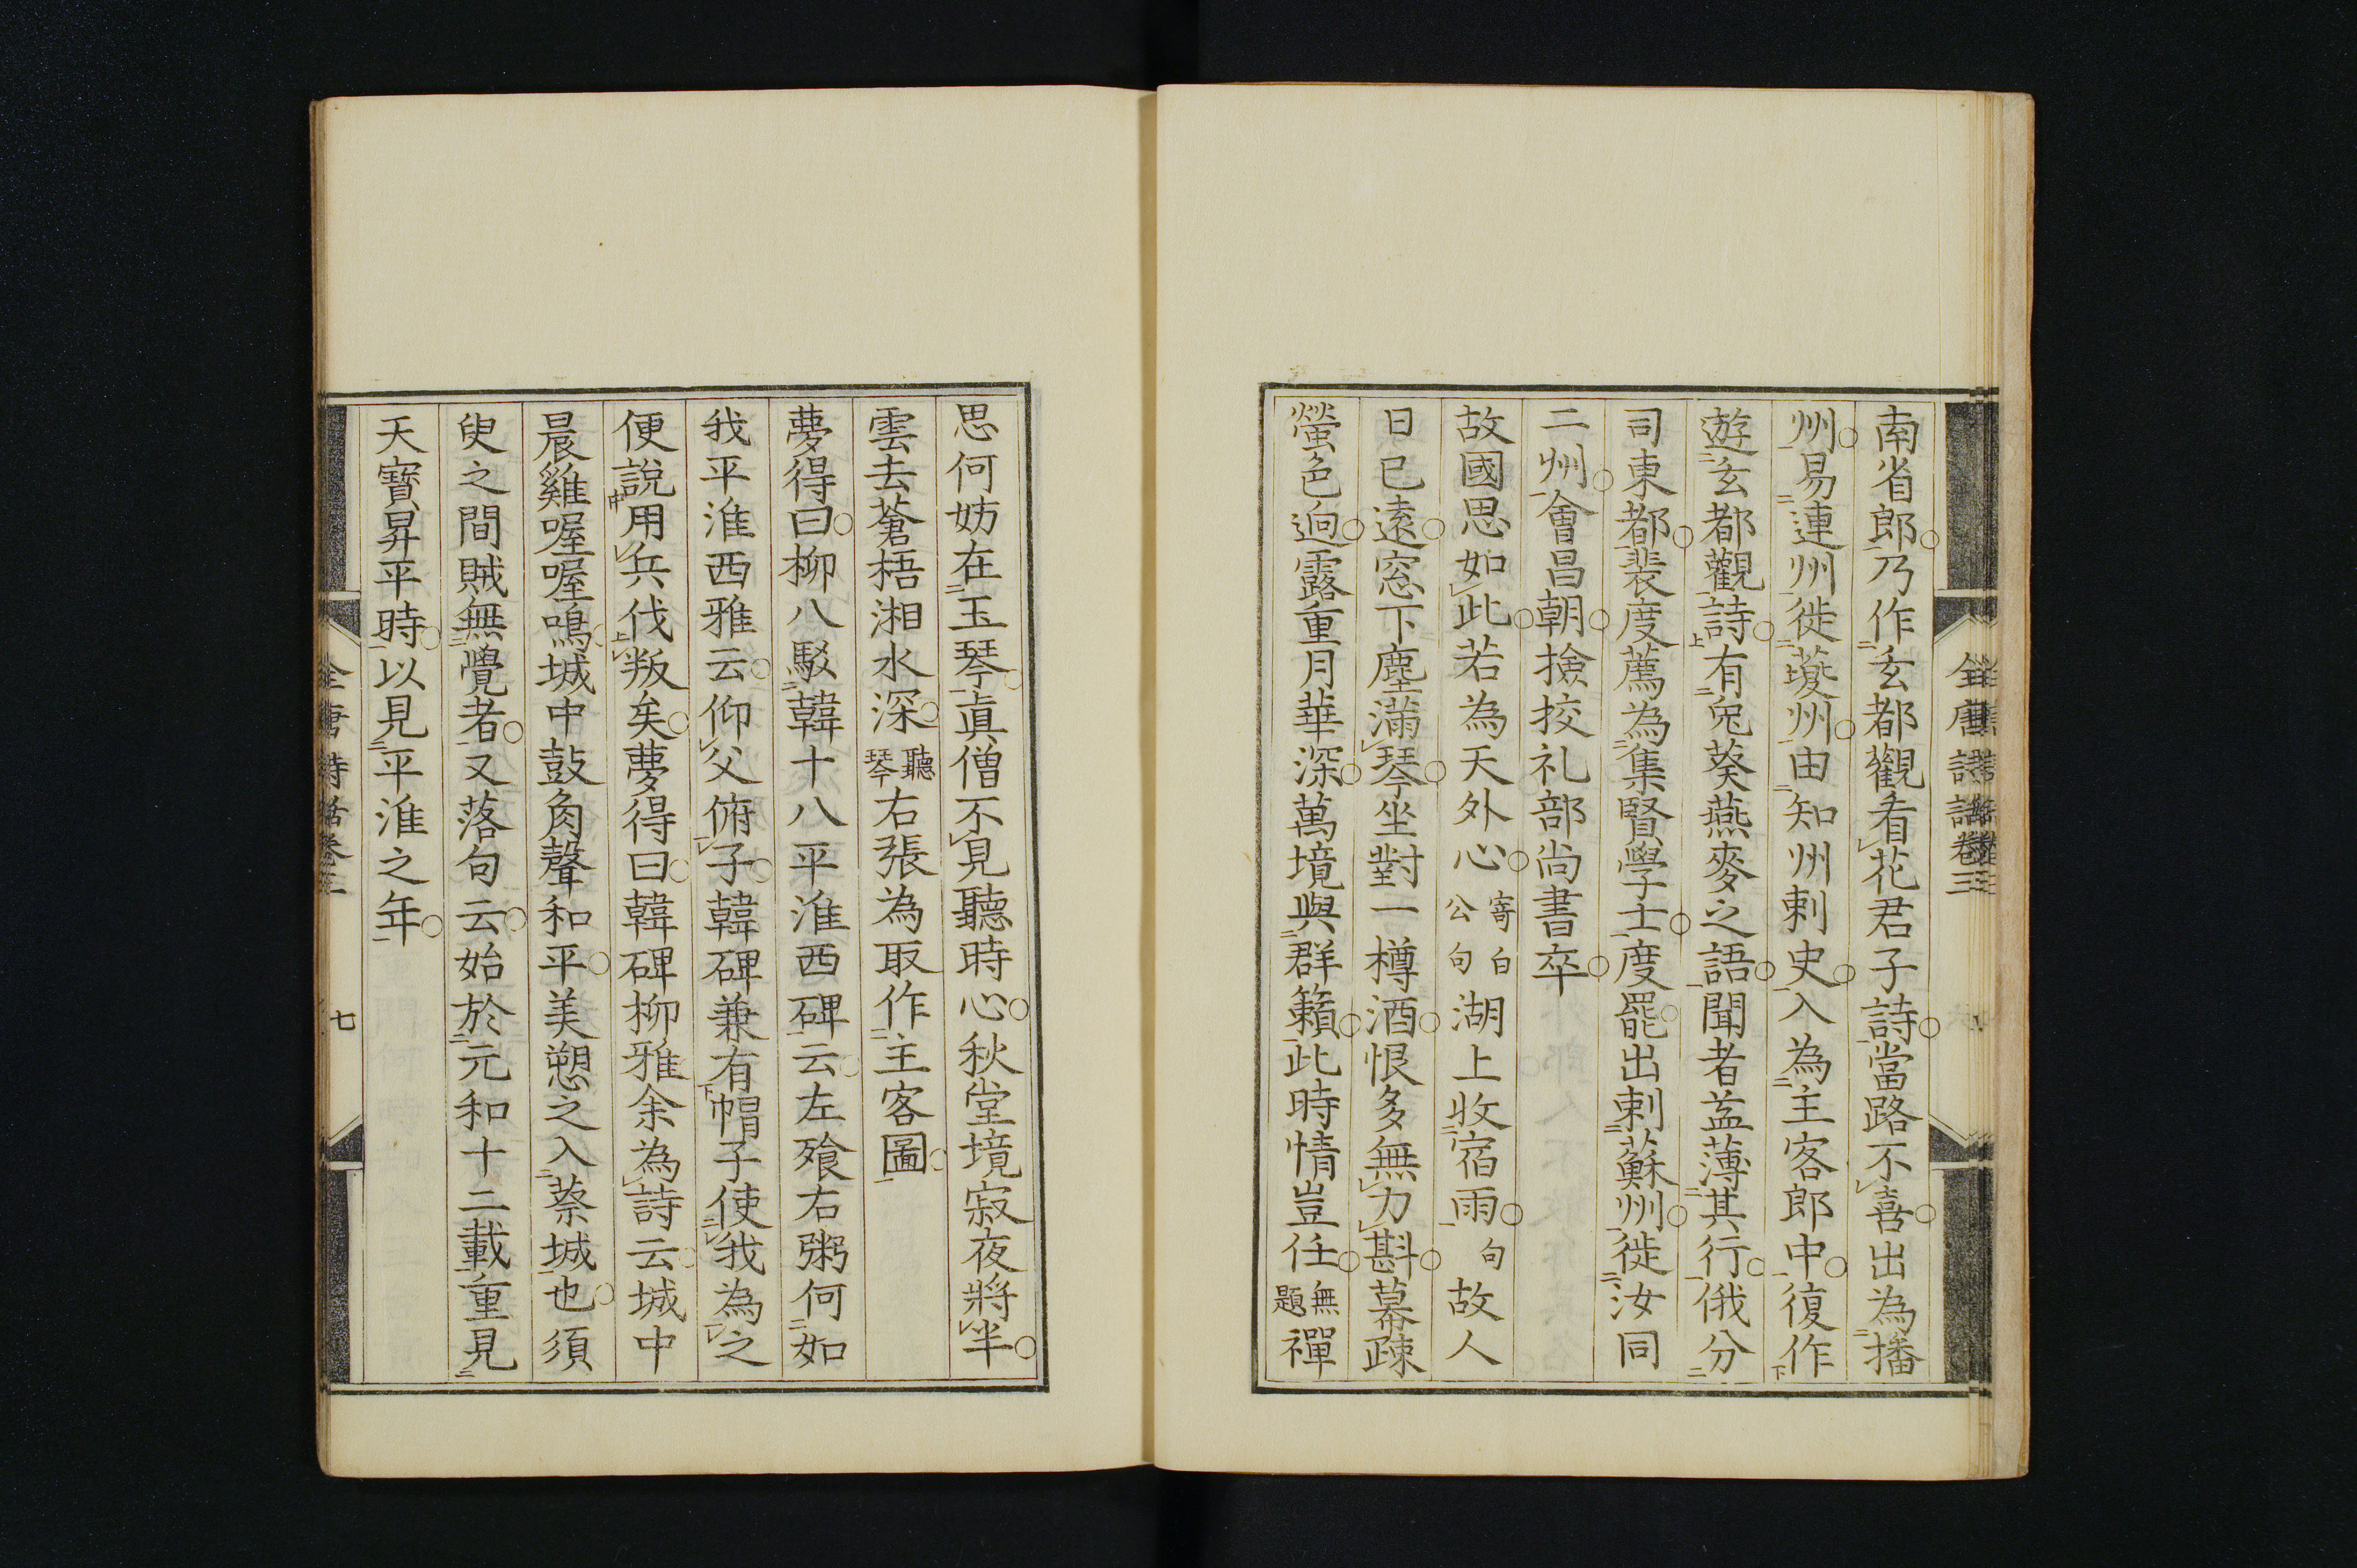 南省郎乃作玄都觀看花君子詩當路不喜出為播
州易連州徙夔州由知州刺史入為主客郎中復作
遊玄都觀詩有兔葵燕麥之語聞者益薄其行俄分
司東都裴度薦為集賢學士度罷出刺蘇州徙汝同
二州會昌朝撿挍礼部尚書卒
故國思如此若為天外心寄白公句湖上收宿雨句故人
日已遠窓下塵滿琴坐對一樽酒恨多無力斟幕疎
螢色迥露重月華深萬境與群籟此時情豈任無題禪
思何妨在玉琴真僧不見聽時心秋堂境寂夜將半
雲去蒼梧湘水深聽琴右張為取作主客圖
夢得曰柳八駁韓十八平淮西碑云左飱右粥何如
我平淮西雅云仰父俯子韓碑兼有帽子使我為之
便說用兵伐叛矣夢得曰韓碑柳雅余為詩云城中
晨雞喔喔鳴城中鼓角聲和平美愬之入蔡城也須
臾之間賊無覺者又落句云始於元和十二載重見
天寶昇平時以見平淮之年
全唐詩話卷三
七